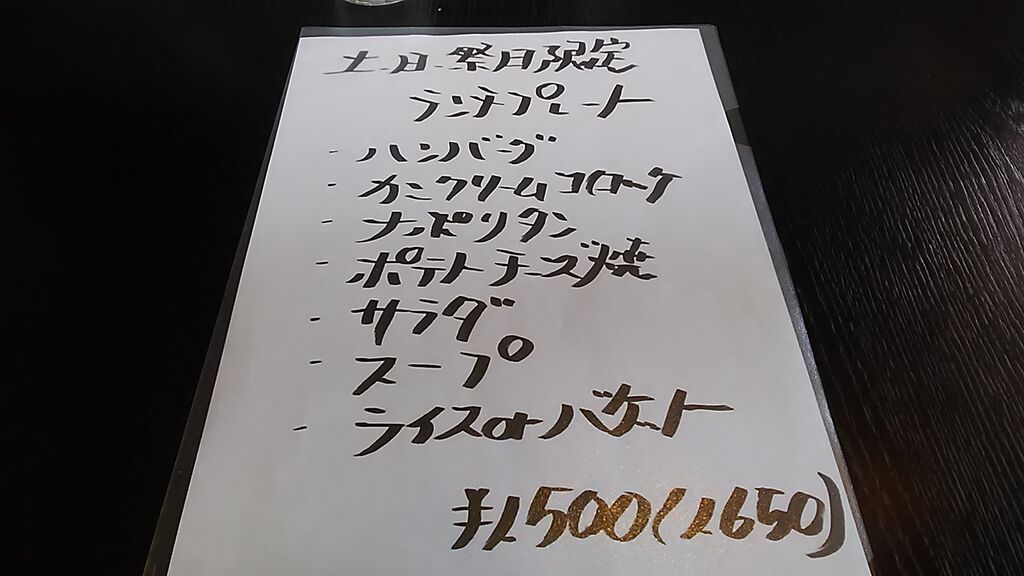 土・日・祭日限定
ランチプレート
- ハンバーグ
- カニクリームコロッケ
- ナポリタン
- ポテトチーズ焼
- サラダ
- スープ
- ライスorバケット
¥1,500(1,650)